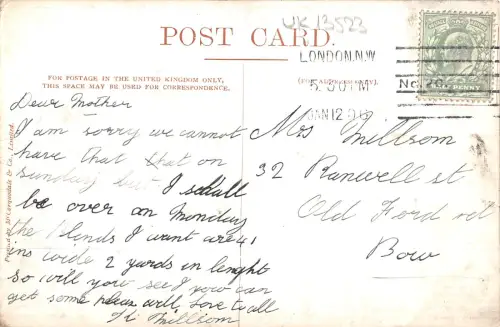 UK 13523
POST CARD.
LONDON.N.W
5.30 PM
JAN 12 0
No
FOR POSTAGE IN THE UNITED KINGDOM ONLY,
THIS SPACE MAY BE USED FOR CORRESPONDENCE.
PENNY
Dear Mother
I am sorry we cannot
have that on
sunday but I shall
be over on Monday
the blends I want are 41
ins wide 2 yards in lenght
so will you see I you can
get some will, love to all
Millsom
Mrs Millsom
32 Ranwell st
Old Ford rd
Bow
& Co., Limited.